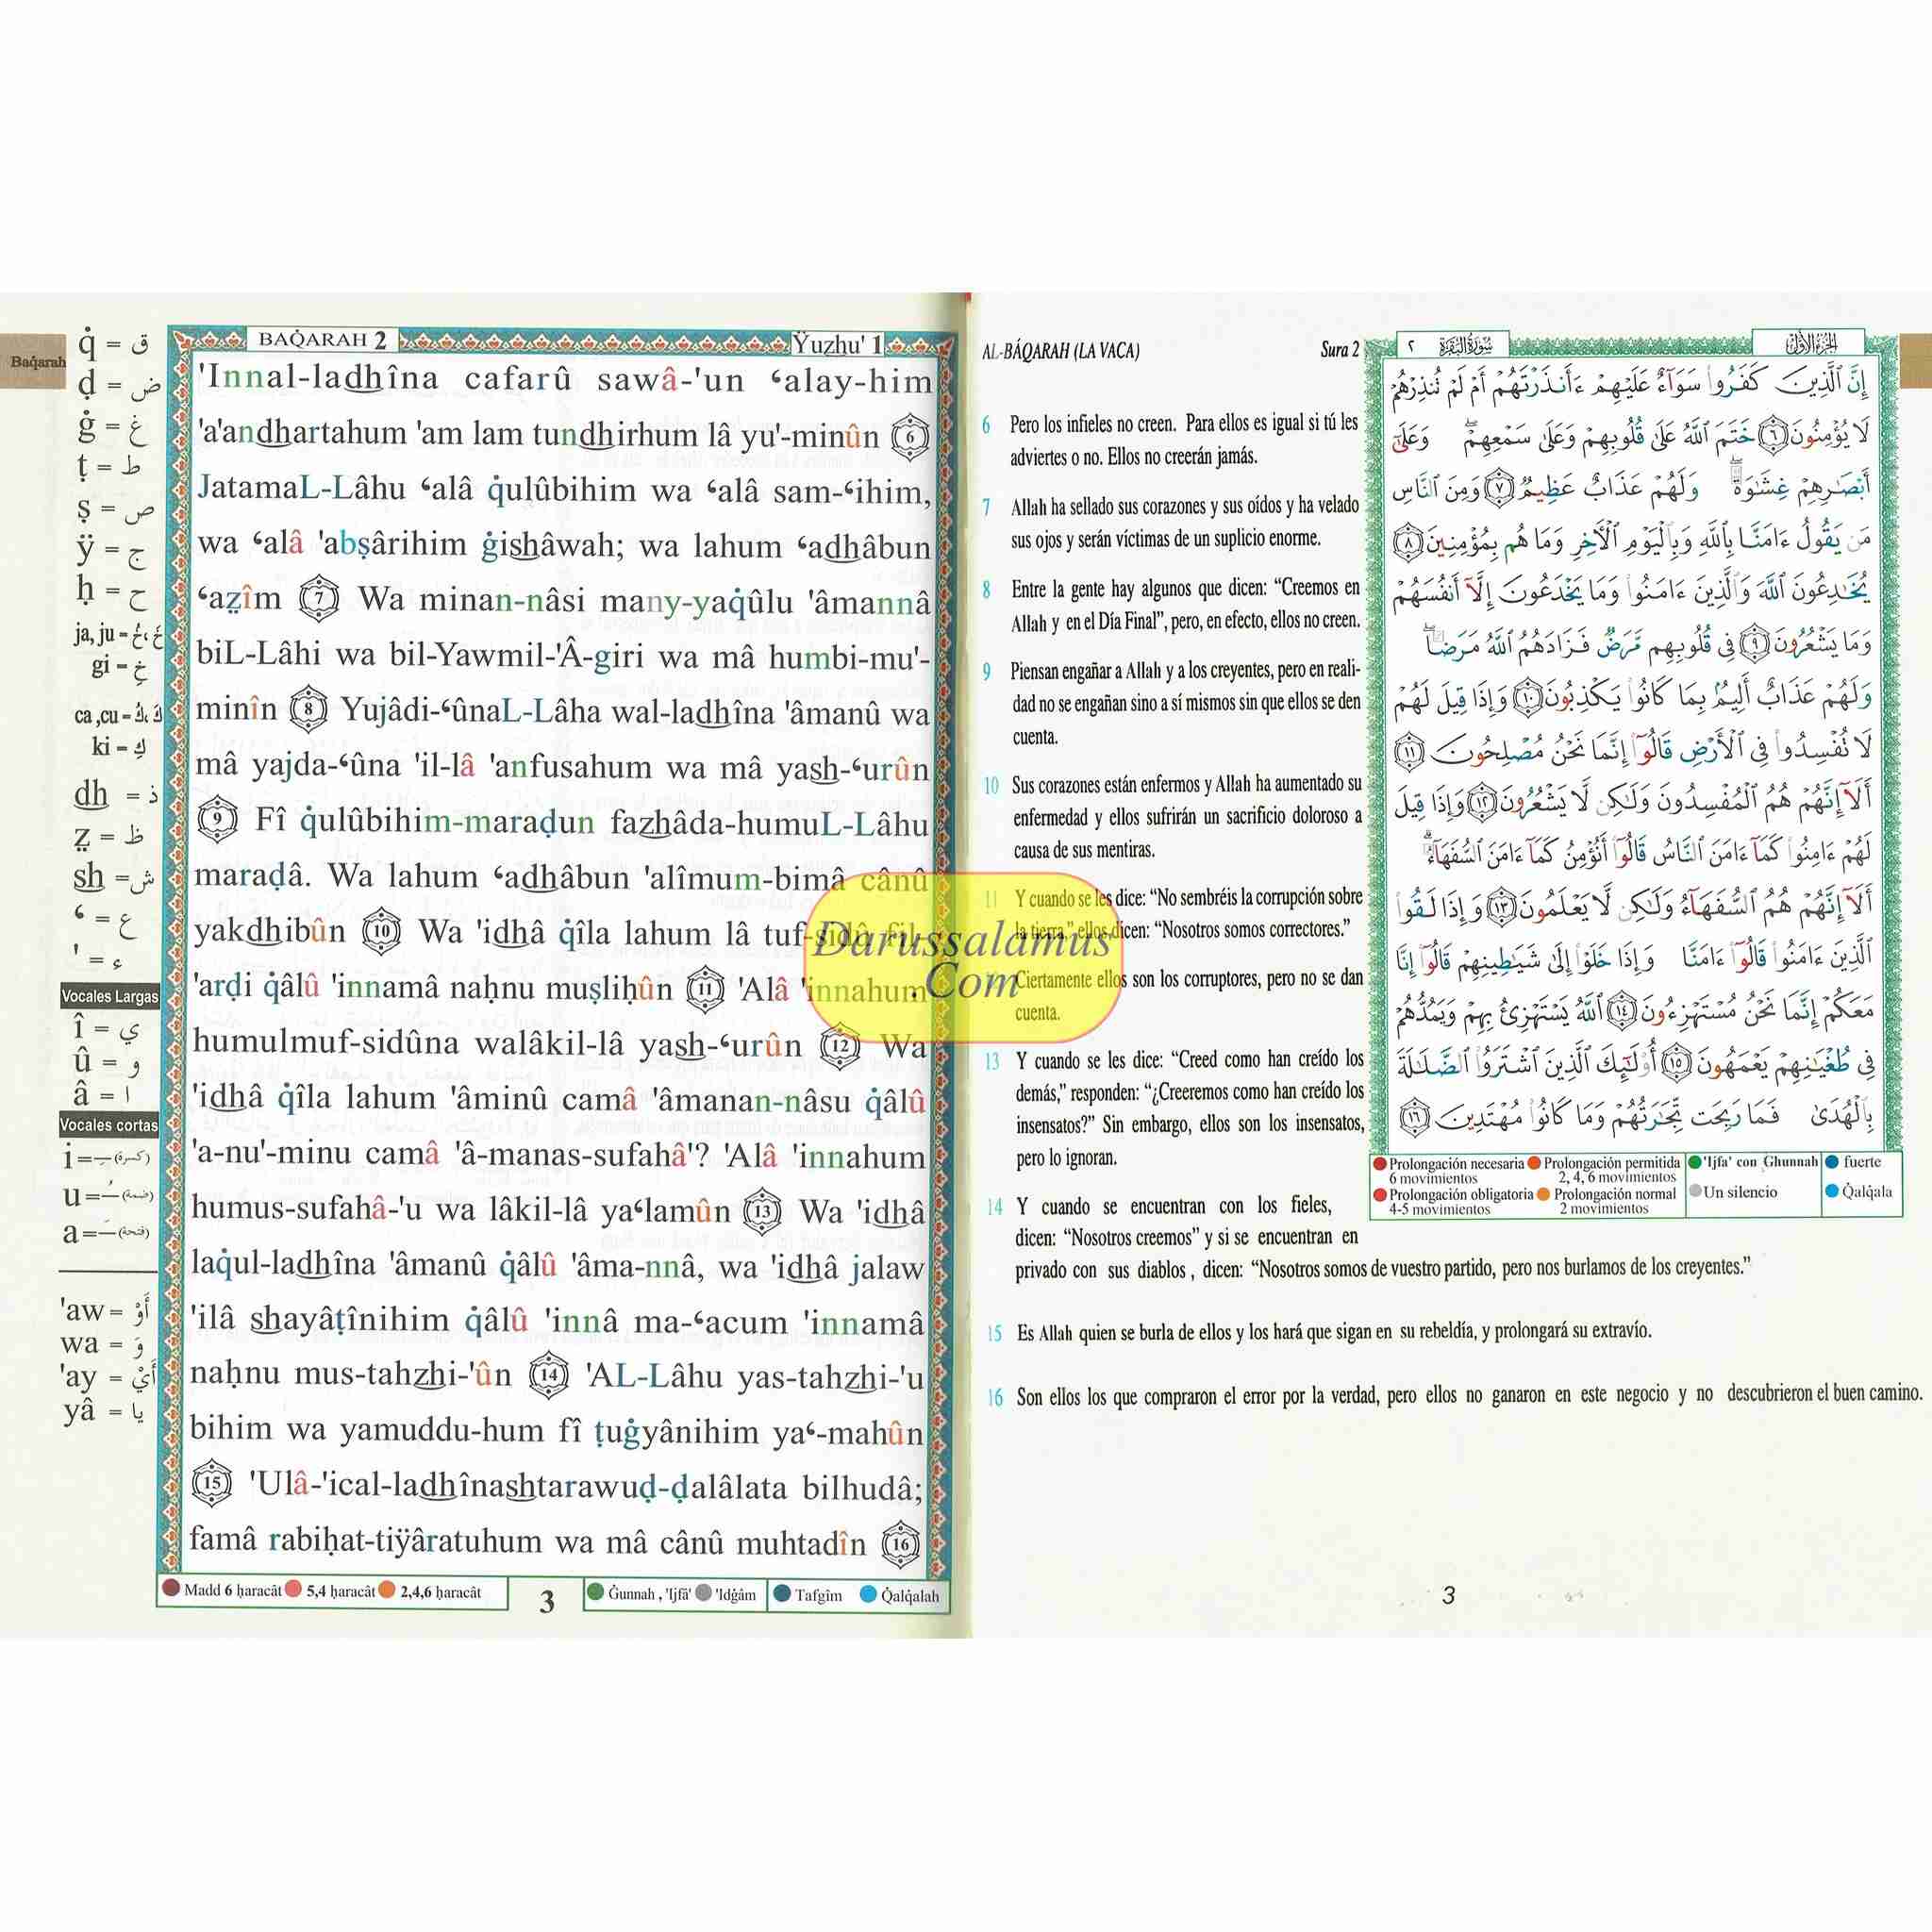 Baq̇arah
q̇ = ق
ḍ = ض
ġ = غ
ṭ = ط
ṣ = ص
ÿ = ج
ḥ = ح
ja, ju = خَ، خُ
gi = خِ
ca ,cu = كَ، كُ
ki = كِ
dh = ذ
ẓ = ظ
sh = ش
ʻ = ع
' = ء
Vocales Largas
î = ي
û = و
â = ا
Vocales cortas
i = ـِ (كسرة)
u = ـُ (ضمة)
a = ـَ (فتحة)
'aw = أَوْ
wa = وَ
'ay = أَيْ
yâ = يا
BAQ̇ARAH 2
Ÿuzhu' 1
'Innal-ladhîna cafarû sawâ-'un ʻalay-him
'a'andhartahum 'am lam tundhirhum lâ yu'-minûn 6
JatamaL-Lâhu ʻalâ q̇ulûbihim wa ʻalâ sam-ʻihim,
wa ʻalâ 'abṣârihim ġishâwah; wa lahum ʻadhâbun
ʻaẓîm 7 Wa minan-nâsi many-yaq̇ûlu 'âmannâ
biL-Lâhi wa bil-Yawmil-'Â-giri wa mâ humbi-mu'-
minîn 8 Yujâdi-ʻûnaL-Lâha wal-ladhîna 'âmanû wa
mâ yajda-ʻûna 'il-lâ 'anfusahum wa mâ yash-ʻurûn
9 Fî q̇ulûbihim-maraḍun fazhâda-humuL-Lâhu
maraḍâ. Wa lahum ʻadhâbun 'alîmum-bimâ cânû
yakdhibûn 10 Wa 'idhâ q̇îla lahum lâ tuf-sidû fil-
'arḍi q̇âlû 'innamâ naḥnu muṣliḥûn 11 'Alâ 'innahum
humulmuf-sidûna walâkil-lâ yash-ʻurûn 12 Wa
'idhâ q̇îla lahum 'âminû camâ 'âmanan-nâsu q̇âlû
'a-nu'-minu camâ 'â-manas-sufahâ'? 'Alâ 'innahum
humus-sufahâ-'u wa lâkil-lâ yaʻlamûn 13 Wa 'idhâ
laq̇ul-ladhîna 'âmanû q̇âlû 'âma-nnâ, wa 'idhâ jalaw
'ilâ shayâṭînihim q̇âlû 'innâ ma-ʻacum 'innamâ
naḥnu mus-tahzhi-'ûn 14 'AL-Lâhu yas-tahzhi-'u
bihim wa yamuddu-hum fî ṭuġyânihim yaʻ-mahûn
15 'Ulâ-'ical-ladhînashtarawuḍ-ḍalâlata bilhudâ;
famâ rabiḥat-tiÿâratuhum wa mâ cânû muhtadîn 16
Madd 6 ḥaracât 5,4 ḥaracât 2,4,6 ḥaracât
3
Ġunnah , 'Ijfâ' 'Idġâm Tafgîm Q̇alq̇alah
AL-BÁQARAH (LA VACA) Sura 2
6 Pero los infieles no creen. Para ellos es igual si tú les
adviertes o no. Ellos no creerán jamás.
7 Allah ha sellado sus corazones y sus oídos y ha velado
sus ojos y serán víctimas de un suplicio enorme.
8 Entre la gente hay algunos que dicen: “Creemos en
Allah y en el Día Final”, pero, en efecto, ellos no creen.
9 Piensan engañar a Allah y a los creyentes, pero en reali-
dad no se engañan sino a sí mismos sin que ellos se den
cuenta.
10 Sus corazones están enfermos y Allah ha aumentado su
enfermedad y ellos sufrirán un sacrificio doloroso a
causa de sus mentiras.
11 Y cuando se les dice: “No sembréis la corrupción sobre
la tierra,” ellos dicen: “Nosotros somos correctores.”
Ciertamente ellos son los corruptores, pero no se dan
cuenta.
13 Y cuando se les dice: “Creed como han creído los
demás,” responden: “¿Creeremos como han creído los
insensatos?” Sin embargo, ellos son los insensatos,
pero lo ignoran.
14 Y cuando se encuentran con los fieles,
dicen: “Nosotros creemos” y si se encuentran en
privado con sus diablos , dicen: “Nosotros somos de vuestro partido, pero nos burlamos de los creyentes.”
15 Es Allah quien se burla de ellos y los hará que sigan en su rebeldía, y prolongará su extravío.
16 Son ellos los que compraron el error por la verdad, pero ellos no ganaron en este negocio y no descubrieron el buen camino.
3
Darussalamus
.Com
الجزء الأول
سورة البقرة ٢
إِنَّ ٱلَّذِينَ كَفَرُوا۟ سَوَآءٌ عَلَيْهِمْ ءَأَنذَرْتَهُمْ أَمْ لَمْ تُنذِرْهُمْ
لَا يُؤْمِنُونَ ٦ خَتَمَ ٱللَّهُ عَلَىٰ قُلُوبِهِمْ وَعَلَىٰ سَمْعِهِمْ ۖ وَعَلَىٰٓ
أَبْصَٰرِهِمْ غِشَٰوَةٌ ۖ وَلَهُمْ عَذَابٌ عَظِيمٌ ٧ وَمِنَ ٱلنَّاسِ
مَن يَقُولُ ءَامَنَّا بِٱللَّهِ وَبِٱلْيَوْمِ ٱلْأَخِرِ وَمَا هُم بِمُؤْمِنِينَ ٨
يُخَٰدِعُونَ ٱللَّهَ وَٱلَّذِينَ ءَامَنُوا۟ وَمَا يَخْدَعُونَ إِلَّآ أَنفُسَهُمْ
وَمَا يَشْعُرُونَ ٩ فِى قُلُوبِهِم مَّرَضٌ فَزَادَهُمُ ٱللَّهُ مَرَضًا ۖ
وَلَهُمْ عَذَابٌ أَلِيمٌۢ بِمَا كَانُوا۟ يَكْذِبُونَ ١٠ وَإِذَا قِيلَ لَهُمْ
لَا تُفْسِدُوا۟ فِى ٱلْأَرْضِ قَالُوٓا۟ إِنَّمَا نَحْنُ مُصْلِحُونَ ١١
أَلَآ إِنَّهُمْ هُمُ ٱلْمُفْسِدُونَ وَلَٰكِن لَّا يَشْعُرُونَ ١٢ وَإِذَا قِيلَ
لَهُمْ ءَامِنُوا۟ كَمَآ ءَامَنَ ٱلنَّاسُ قَالُوٓا۟ أَنُؤْمِنُ كَمَآ ءَامَنَ ٱلسُّفَهَآءُ ۗ
أَلَآ إِنَّهُمْ هُمُ ٱلسُّفَهَآءُ وَلَٰكِن لَّا يَعْلَمُونَ ١٣ وَإِذَا لَقُوا۟
ٱلَّذِينَ ءَامَنُوا۟ قَالُوٓا۟ ءَامَنَّا وَإِذَا خَلَوْا۟ إِلَىٰ شَيَٰطِينِهِمْ قَالُوٓا۟ إِنَّا
مَعَكُمْ إِنَّمَا نَحْنُ مُسْتَهْزِءُونَ ١٤ ٱللَّهُ يَسْتَهْزِئُ بِهِمْ وَيَمُدُّهُمْ
فِى طُغْيَٰنِهِمْ يَعْمَهُونَ ١٥ أُو۟لَٰٓئِكَ ٱلَّذِينَ ٱشْتَرَوُا۟ ٱلضَّلَٰلَةَ
بِٱلْهُدَىٰ فَمَا رَبِحَت تِّجَٰرَتُهُمْ وَمَا كَانُوا۟ مُهْتَدِينَ ١٦
Prolongación necesaria Prolongación permitida 'Ijfa' con Ghunnah fuerte
6 movimientos 2, 4, 6 movimientos
Prolongación obligatoria Prolongación normal Un silencio Q̇alq̇ala
4-5 movimientos 2 movimientos